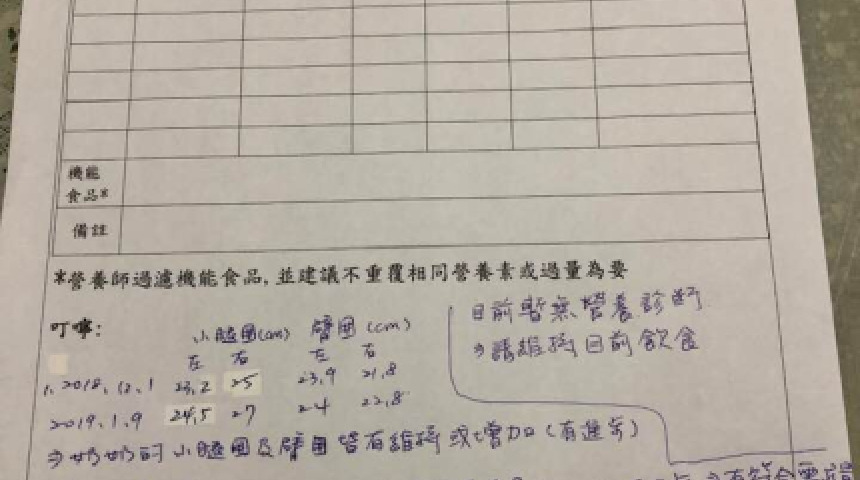 機能
食品*
備註
*營養師過濾機能食品,並建議不重覆相同營養素或過量為要
叮嚀:
小腿圍(cm) 臂圍(cm)
左 右 左 右
1. 2018. 12. 1 23.2 25 23.9 21.8
2019. 1. 9 24.5 27 24 22.8
⇒奶奶的小腿圍及臂圍皆有維持或增加(有進步)
目前暫無營養診斷
⇒請維持目前飲食